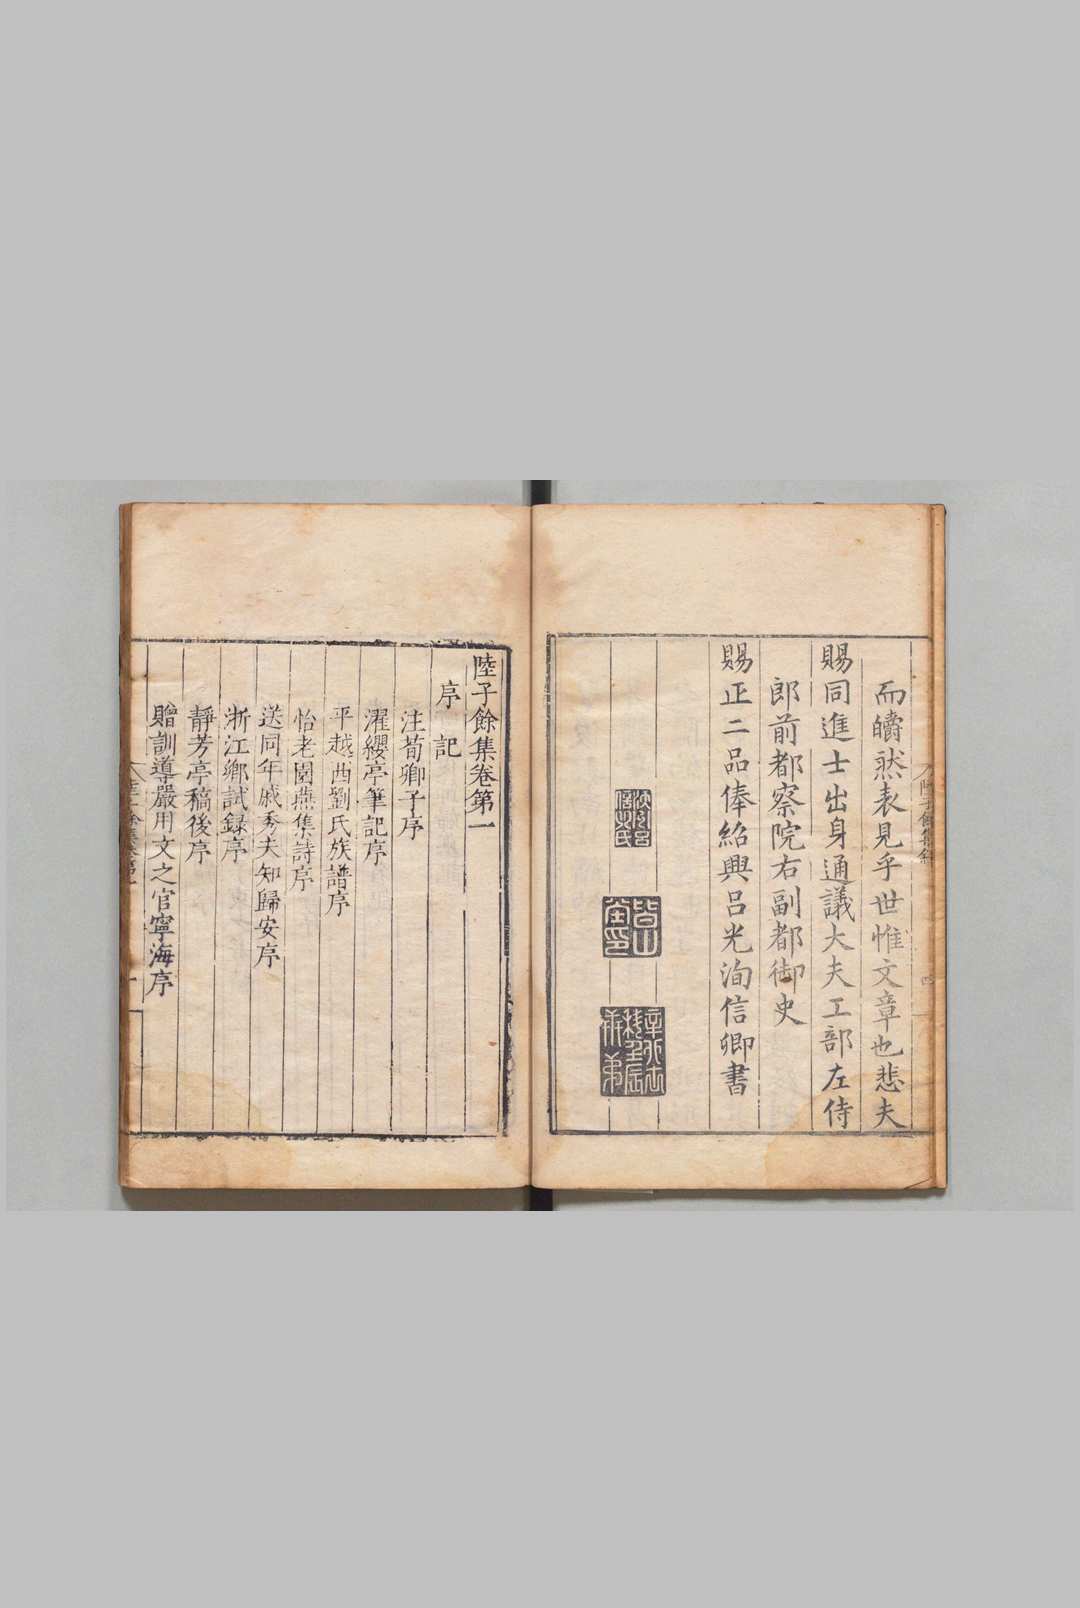 而皭然表見乎世惟文章也悲夫
賜同進士出身通議大夫工部左侍
郎前都察院右副都御史
賜正二品俸紹興呂光洵信卿書
陸子餘集卷第一
序記
注荀卿子序
濯纓亭筆記序
平越西劉氏族譜序
怡老園燕集詩序
送同年戚秀夫知歸安序
浙江鄉試録序
靜芳亭稿後序
贈訓導嚴用文之官寧海序